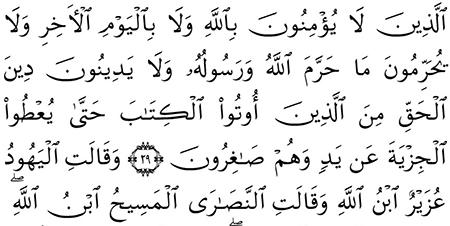 ٱلَّذِينَ لَا يُؤْمِنُونَ بِٱللَّهِ وَلَا بِٱلْيَوْمِ ٱلْأَخِرِ وَلَا
يُحَرِّمُونَ مَا حَرَّمَ ٱللَّهُ وَرَسُولُهُۥ وَلَا يَدِينُونَ دِينَ
ٱلْحَقِّ مِنَ ٱلَّذِينَ أُوتُوا۟ ٱلْكِتَٰبَ حَتَّىٰ يُعْطُوا۟
ٱلْجِزْيَةَ عَن يَدٍ وَهُمْ صَٰغِرُونَ ۝٢٩ وَقَالَتِ ٱلْيَهُودُ
عُزَيْرٌ ٱبْنُ ٱللَّهِ وَقَالَتِ ٱلنَّصَٰرَى ٱلْمَسِيحُ ٱبْنُ ٱللَّهِ ۖ